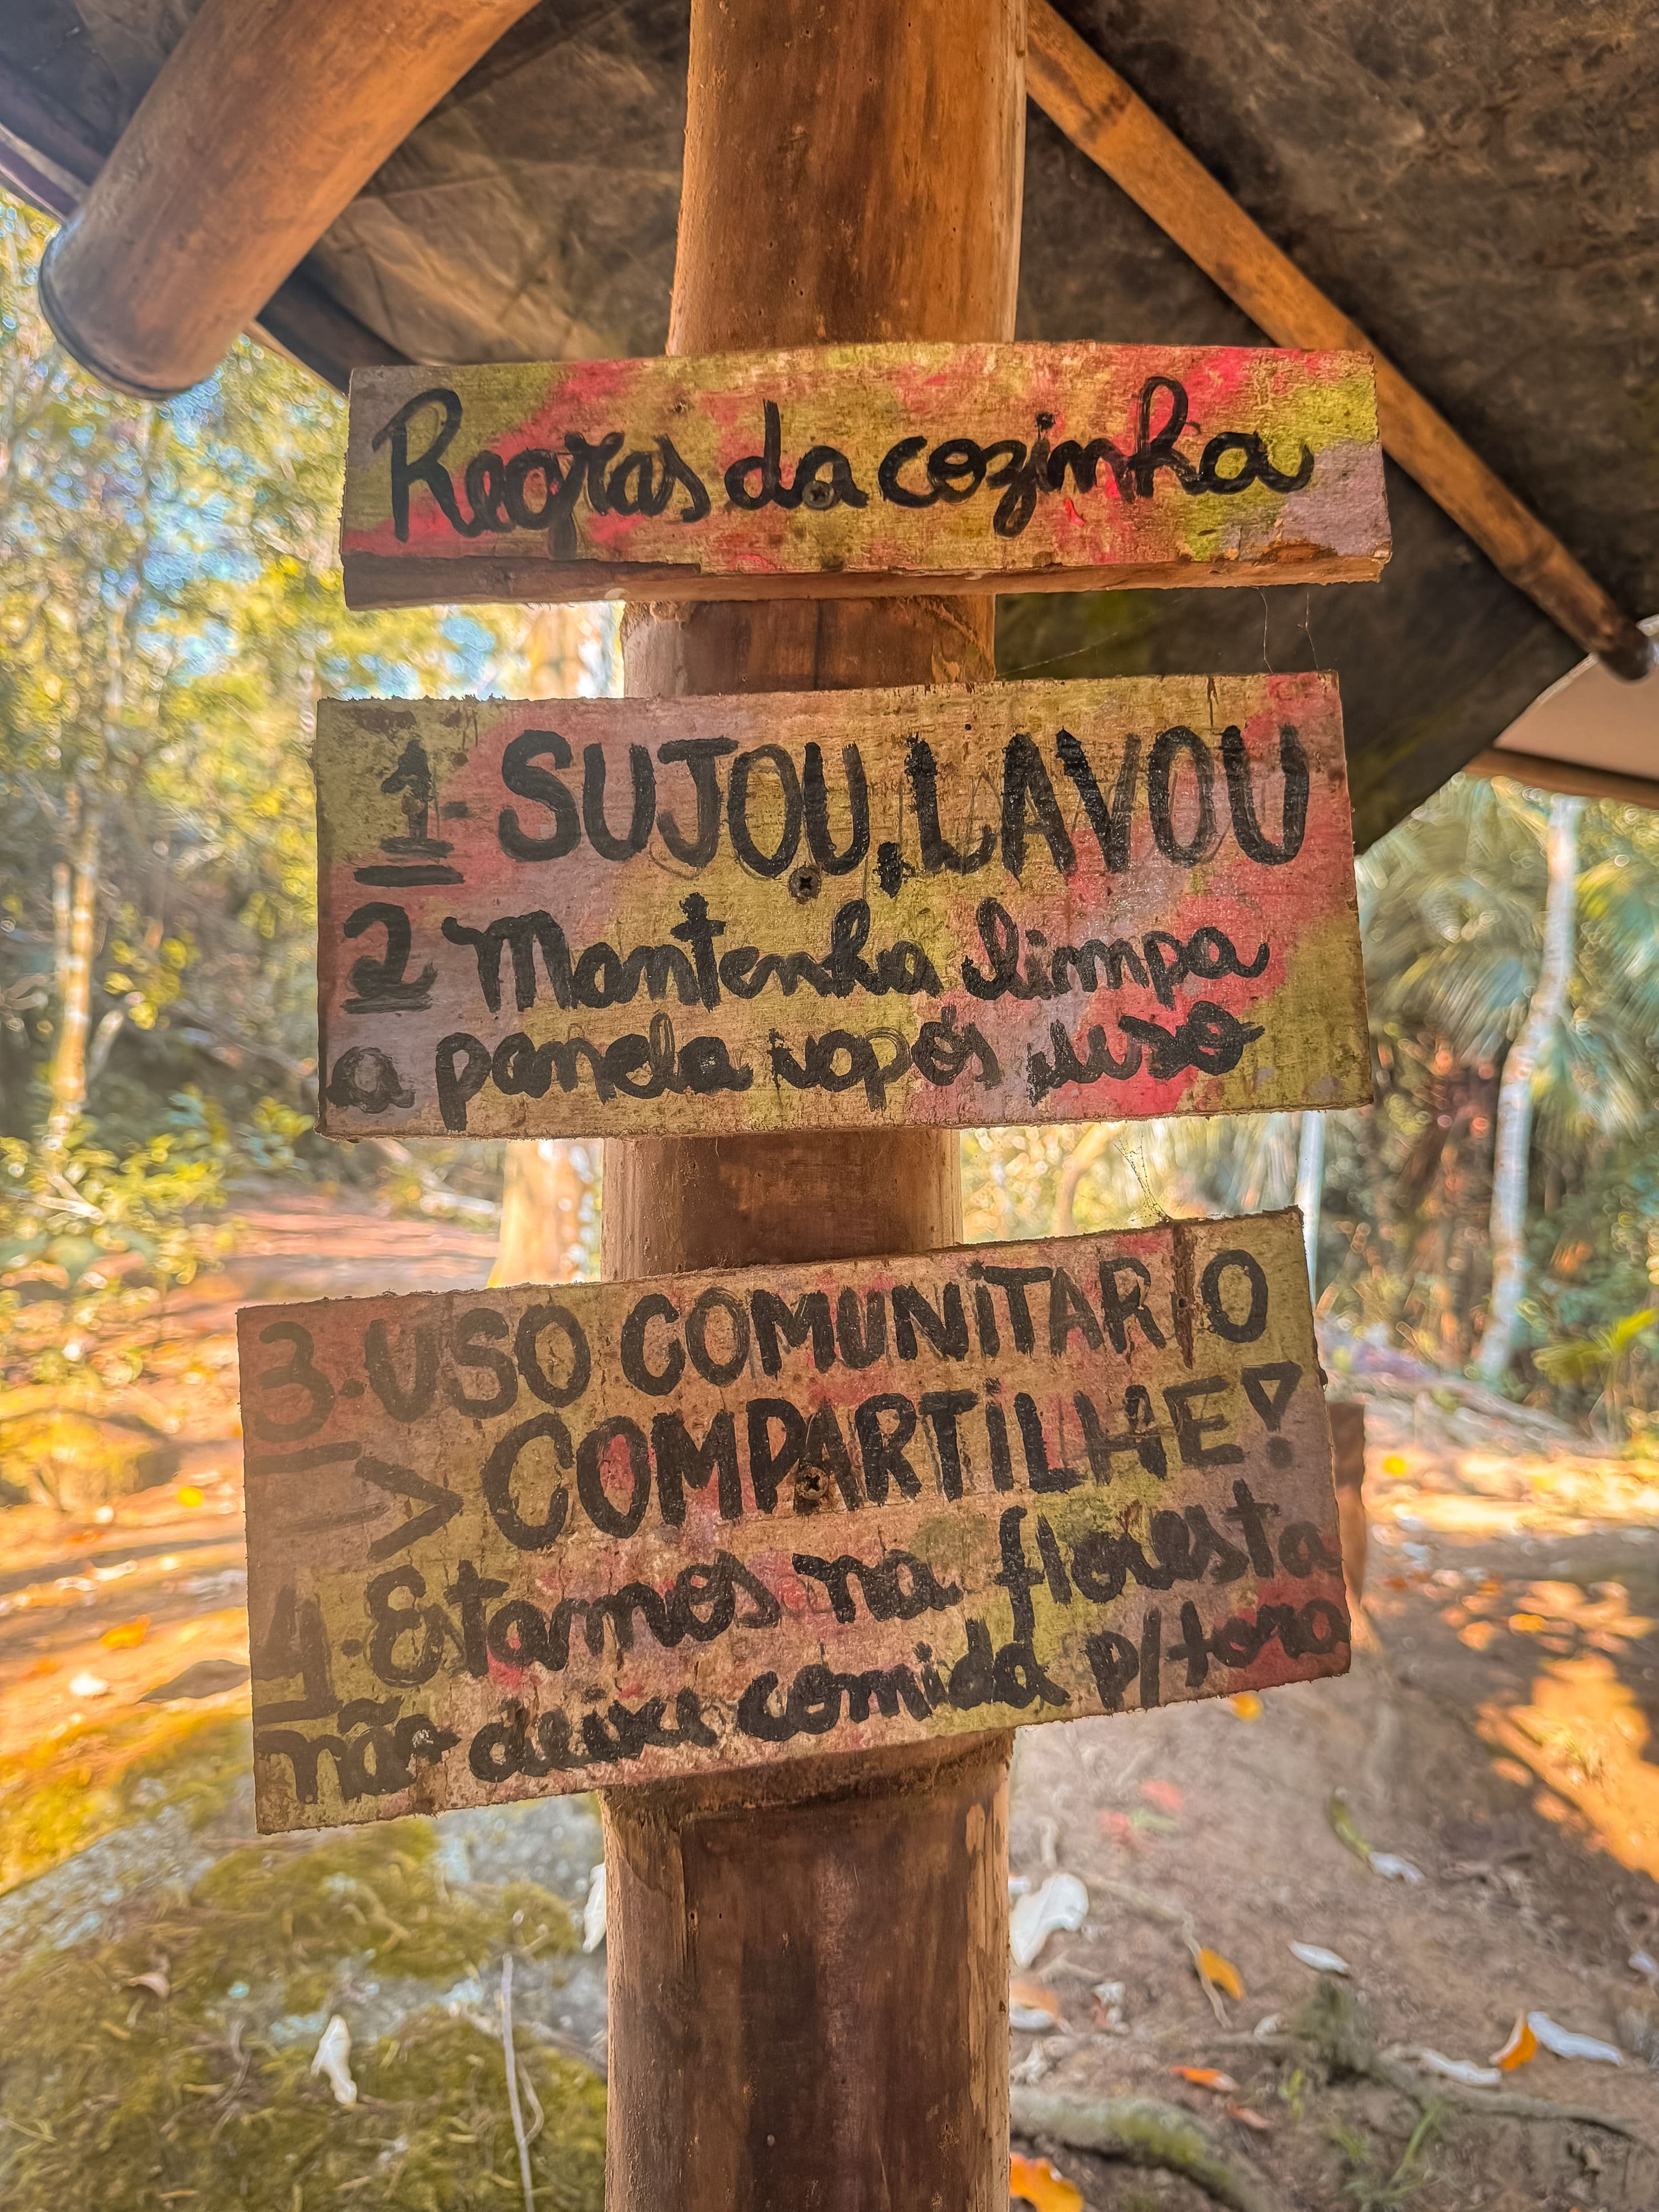 Regras da cozinha
1. SUJOU, LAVOU
2 Mantenha limpa
a panela após uso
3. USO COMUNITARIO
> COMPARTILHE!
4. Estamos na floresta
não deixe comida p/ fora